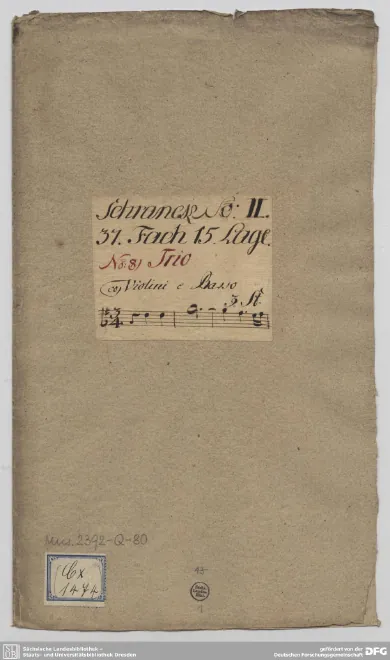 Schranck No: II.
31. Fach 15. Lage.
No: 8) Trio
co Violini e Basso
3. St
Mus. 2392-Q-80
Cx
1474
13
1
Sächsische Landesbibliothek -
Staats- und Universitätsbibliothek Dresden
gefördert von der
Deutschen Forschungsgemeinschaft
DFG